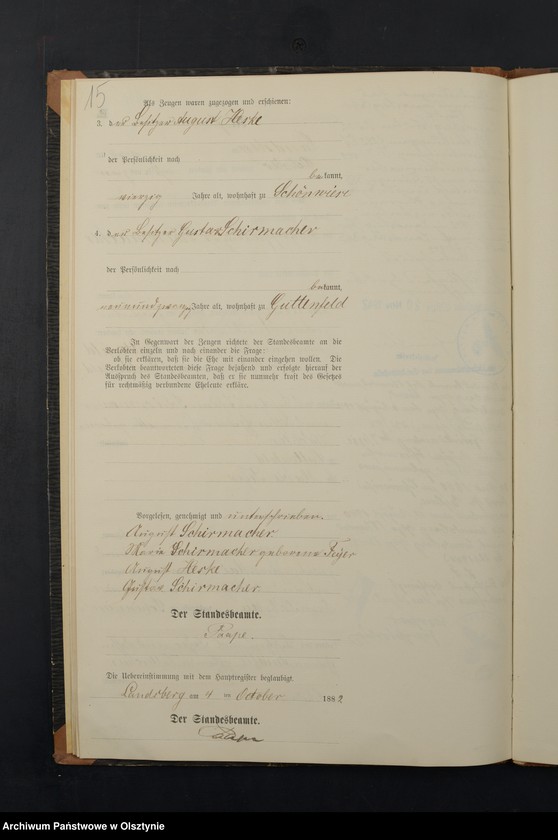 15
Als Zeugen waren zugezogen und erschienen:
3. der Besitzer August Heske
der Persönlichkeit nach
bekannt,
vierzig Jahre alt, wohnhaft zu Schönwiese
4. der Besitzer Gustav Schirmacher
der Persönlichkeit nach
bekannt,
Jahre alt, wohnhaft zu Guttenfeld
In Gegenwart der Zeugen richtete der Standesbeamte an die
Verlobten einzeln und nach einander die Frage:
ob sie erklären, daß sie die Ehe mit einander eingehen wollen. Die
Verlobten beantworteten diese Frage bejahend und erfolgte hierauf der
Ausspruch des Standesbeamten, daß er sie nunmehr kraft des Gesetzes
für rechtmäßig verbundene Eheleute erkläre.
Vorgelesen, genehmigt und unterschrieben.
August Schirmacher
Maria Schirmacher geborene
August Heske
Gustav Schirmacher
Der Standesbeamte.
Die Uebereinstimmung mit dem Hauptregister beglaubigt.
Landsberg am 4 ten October 1882
Der Standesbeamte.
Archiwum Państwowe w Olsztynie